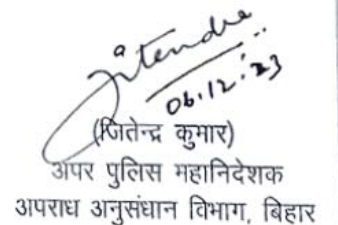 Jitendra
06.12.23
(जितेन्द्र कुमार)
अपर पुलिस महानिदेशक
अपराध अनुसंधान विभाग, बिहार